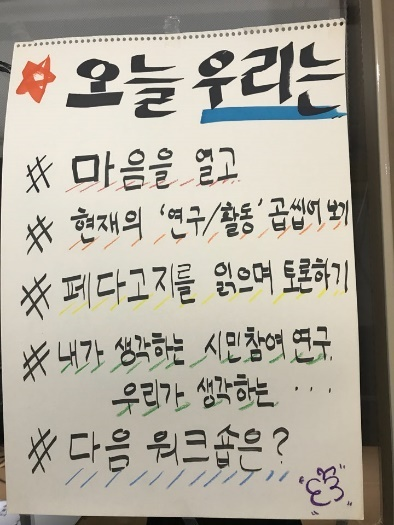 오늘 우리는
# 마음을 열고
# 현재의 '연구/활동' 곱씹어 보기
# 페다고지를 읽으며 토론하기
# 내가 생각하는 시민참여 연구
우리가 생각하는 ...
# 다음 워크숍은?